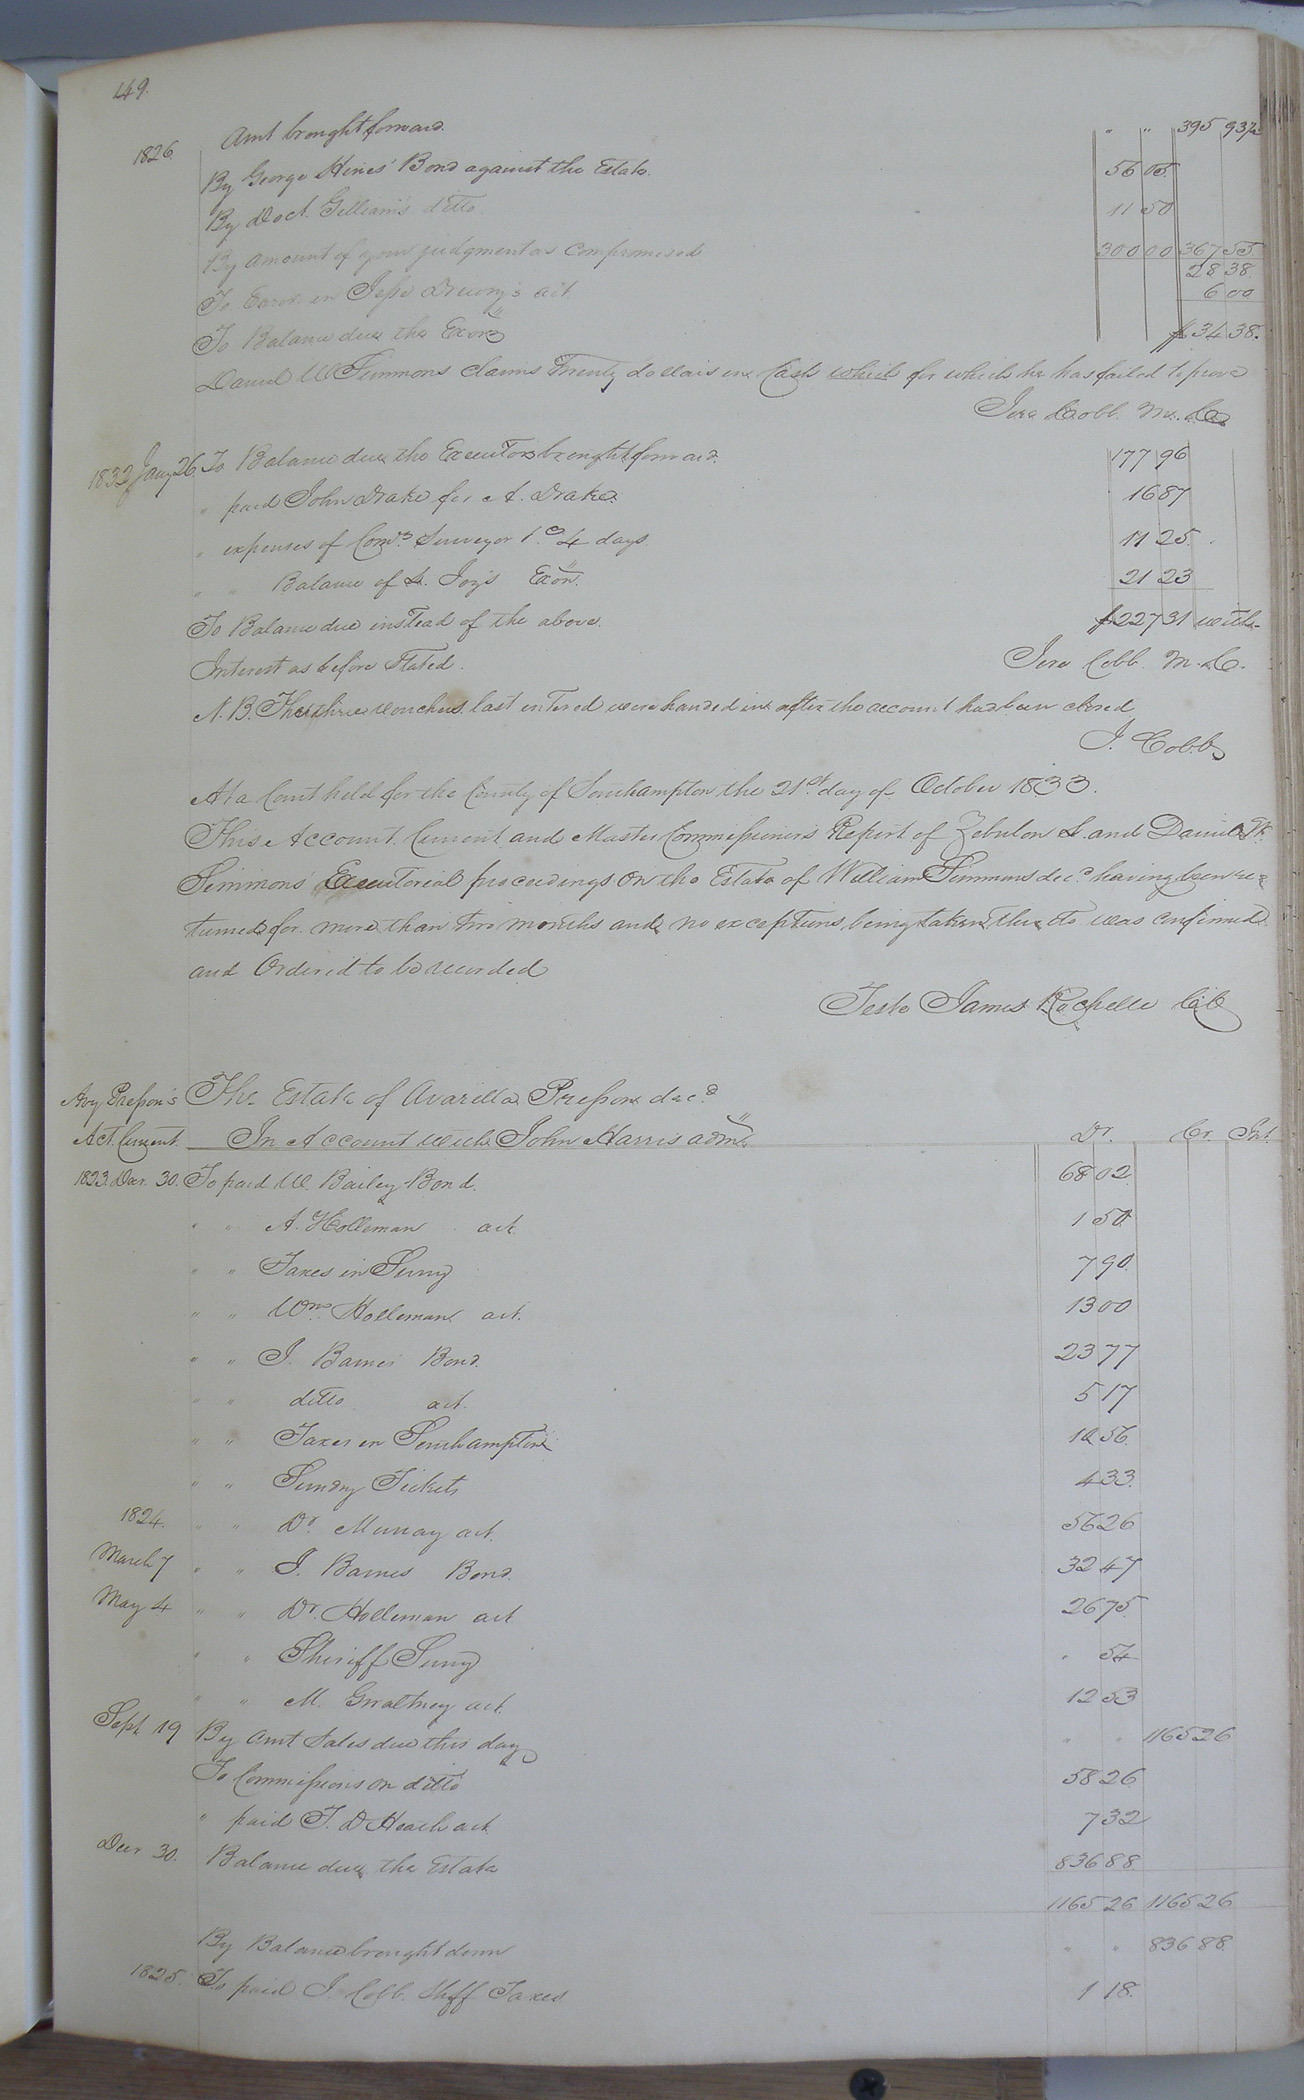 149.
Amt brought forward. " " 395 93½
1826 By George Hines' Bond against the Estate. 56 05.
By Doct. Gilliam's ditto 11 50
By amount of your judgment as compromised 300 00 367 55
28 38.
To Error in Jesse Drewry's act. 6 00
To Balance due the Exors $34 38.
Daniel W Simmons claims Twenty dollars in Cash which for which he has failed to prove
Jere Cobb. M. C.
1833 Jany 26. To Balance due the Executors brought forward. 177 96
" paid John Drake for A. Drake. 16 87
" expenses of Comrs Surveyor &c 4 days. 11 25.
" " Balance of L. Joy's Exon. 21 23
To Balance due instead of the above. $227 31 with-
Interest as before Stated. Jere Cobb. M. C.
N.B. The three vouchers last entered were handed in after the account had been closed
J. Cobb
At a Court held for the County of Southampton the 21st day of October 1833.
This Account Current and Master Commissioner's Report of Zebulon L. and Daniel W.
Simmons' Executorial proceedings on the Estate of William Simmons decd having been re=
turned for more than two months and no exceptions being taken thereto was confirmed
and Ordered to be recorded
Teste James Rochelle C.C
Avy Presson's The Estate of Avarilla Presson decd
Act. Current. In Account with John Harris admr Dr. Cr. Int.
1823. Dec. 30. To paid W. Bailey Bond. 68 02
" " A. Holleman act. 1 50
" " Taxes in Surry 7 90
" " Wm. Holleman act. 13 00
" " J. Barnes Bond. 23 77
" " ditto act. 5 17
" " Taxes in Southampton 10 56
" " Sundry Tickets 4 33.
1824. " " Dr. Murray act. 56 26
March 7 " " J. Barnes Bond. 32 47
May 4 " " Dr. Holleman act 26 75
" " Sheriff Surry " 54
" " M. Gwaltney act. 12 53
Sept 19 By amt Sales due this day " " 1165 26
To Commissions on ditto 58 26
" paid T. D Heath act 7 32
Decr 30. Balance due the Estate 836 88
1165 26 1165 26
By Balance brought down " " 836 88
1825. To paid J. Cobb. Shff Taxes 1 18.